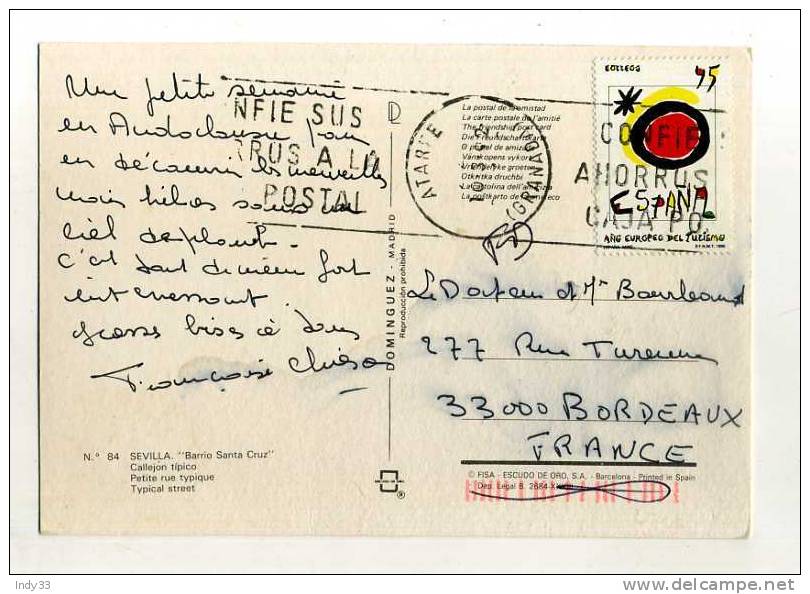 Une petite semaine
en Andalousie pour
en découvrir les merveilles
mais hélas sous un
ciel de plomb.
C'est tout de même fort
intéressant.
grosses bises à tous
Françoise
N.º 84 SEVILLA. "Barrio Santa Cruz"
Callejón típico
Petite rue typique
Typical street
DOMINGUEZ - MADRID
Reproducción prohibida
NFIE SUS
RROS A LA
POSTAL
La postal de la amistad
La carte postale de l'amitié
The friendship post card
Die Freundschaftskarte
O postal de amizade
Otkritka druchbi
La cartolina dell'amicizia
ATARFE
(GRANADA)
CORREOS 45
ESPAÑA
AÑO EUROPEO DEL TURISMO
CONFIE
AHORROS
CAJA PO
Le Docteur et Me
277 Rue Turenne
33000 BORDEAUX
FRANCE
© FISA - ESCUDO DE ORO, S.A. - Barcelona - Printed in Spain
Dep. Legal B. 2684-X
Indy33
delcampe.net